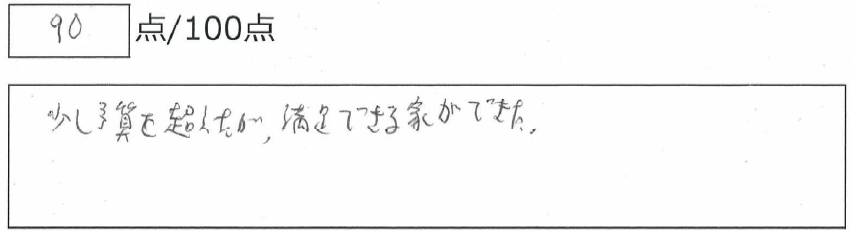 90 点/100点
少し予算を超えたが、満足できる家ができた。